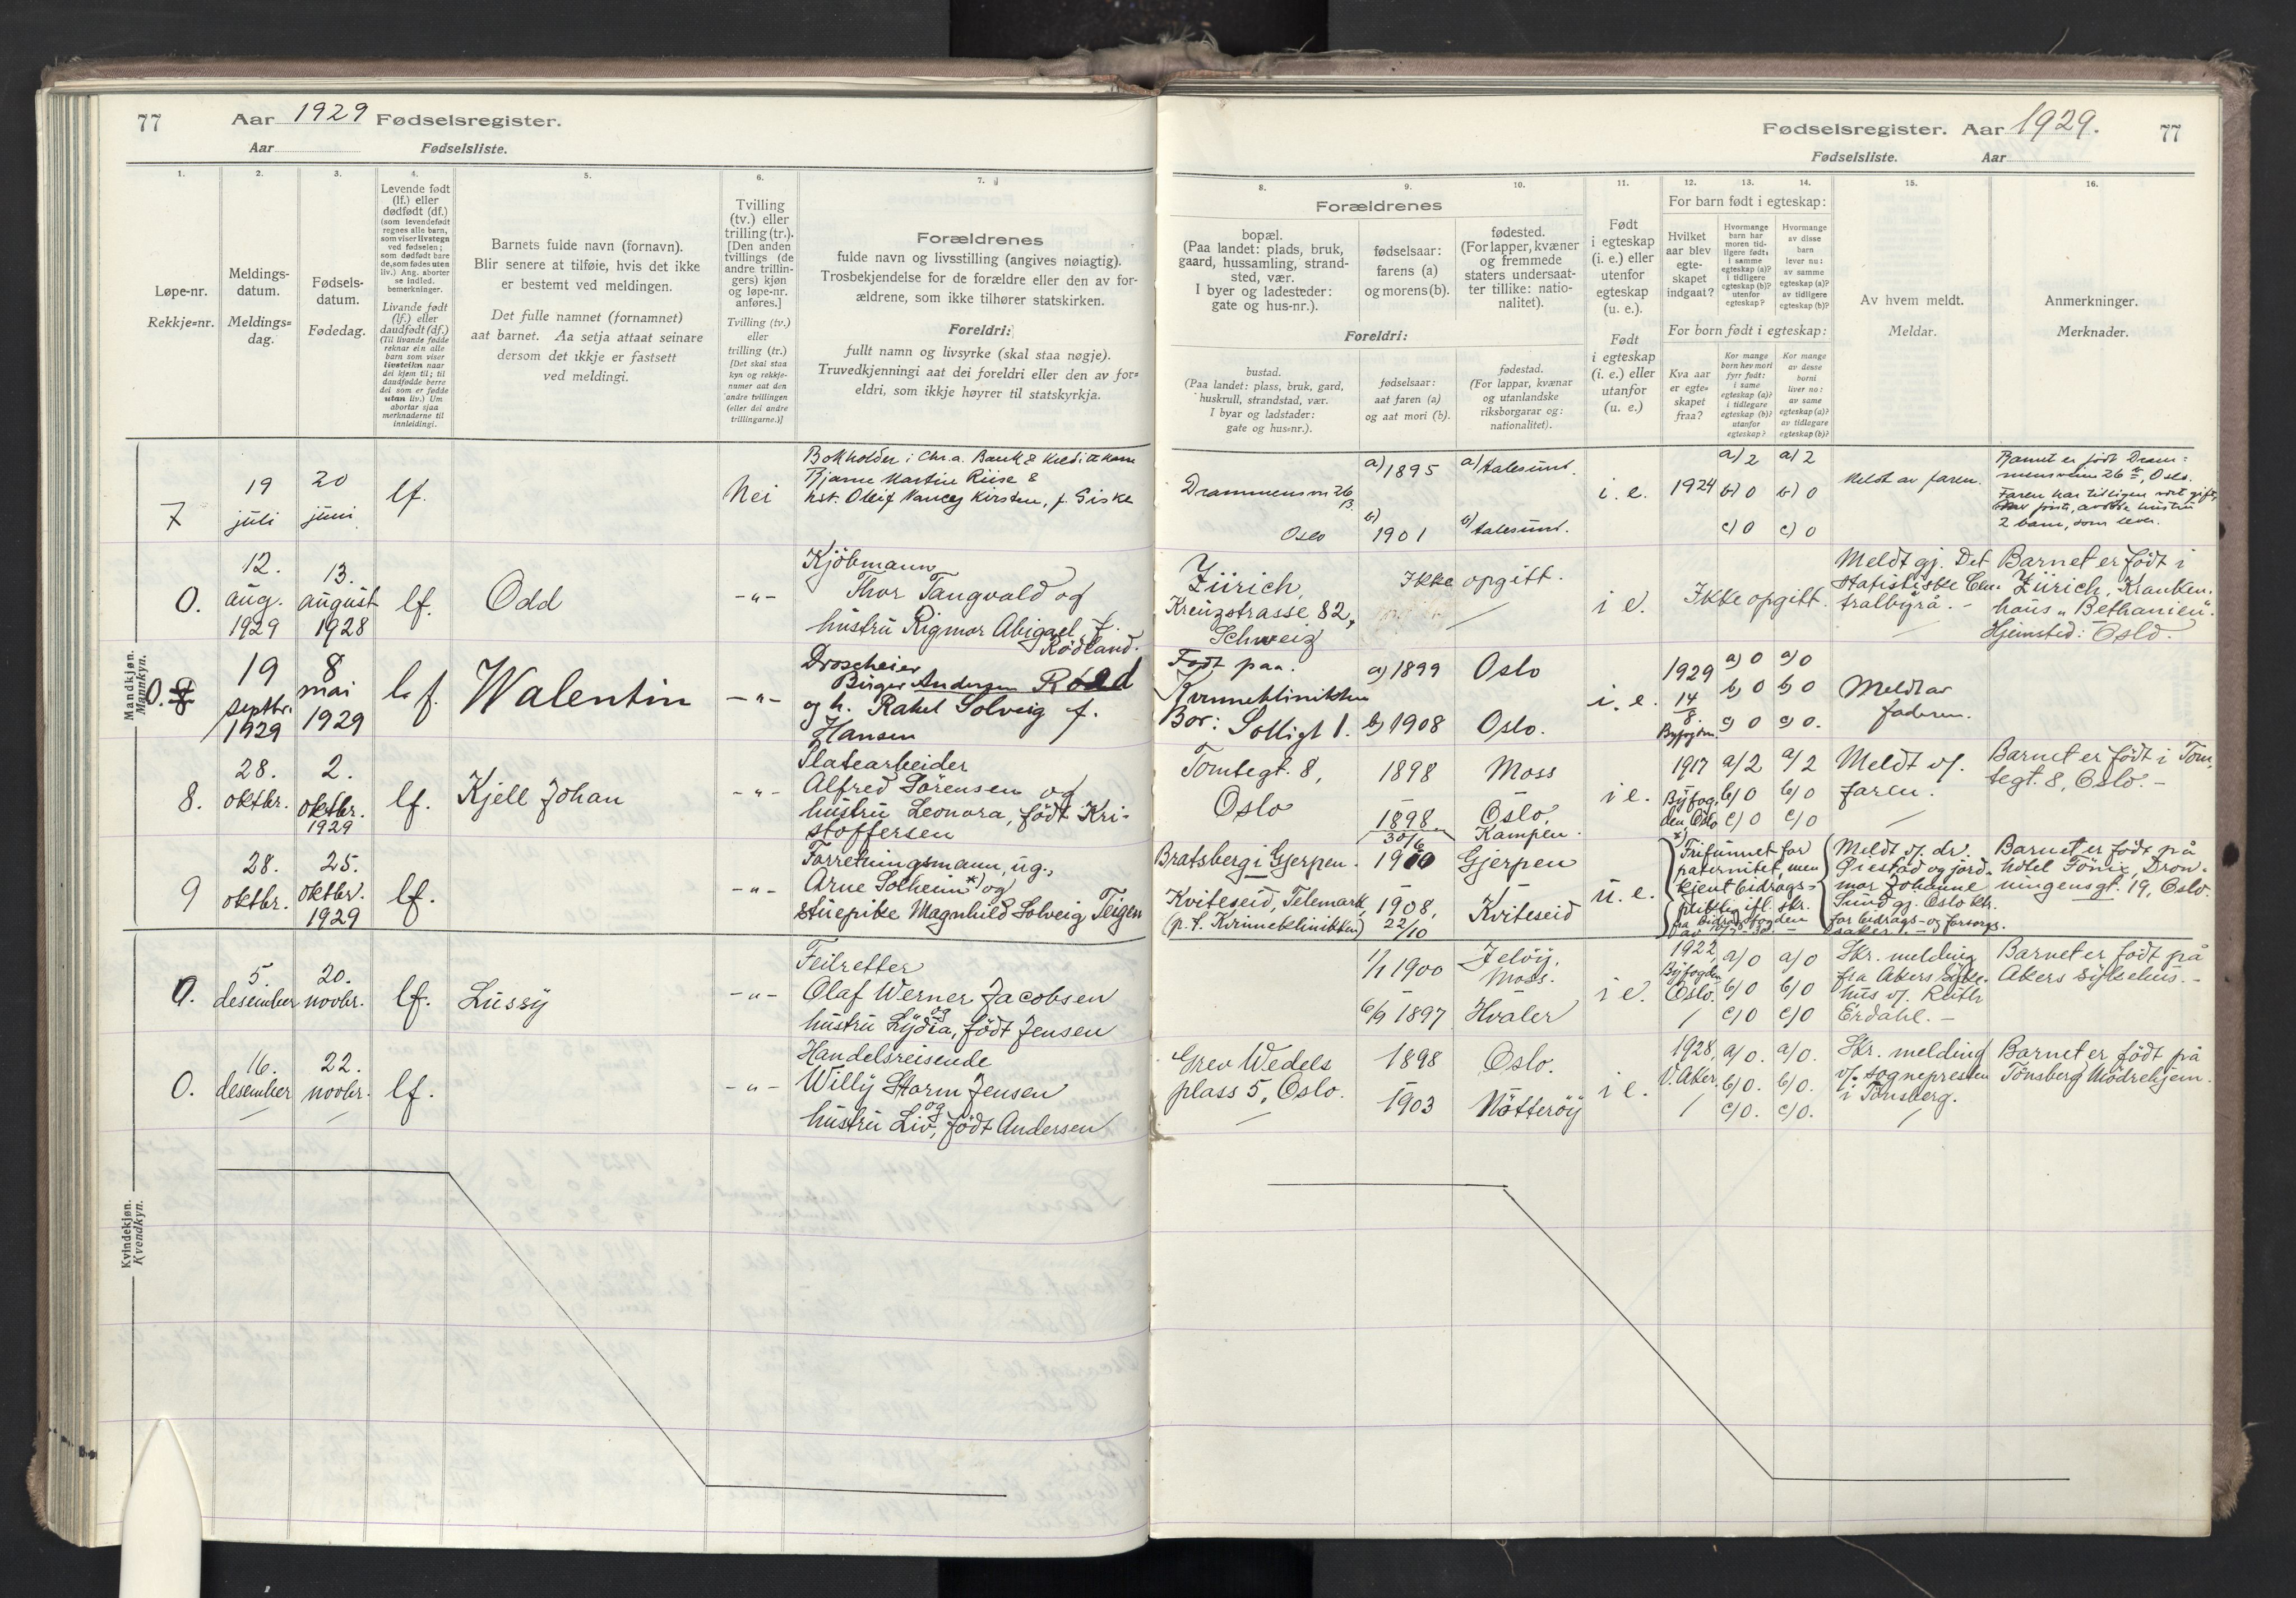 77
Aar 1929 Fødselsregister.
Aar Fødselsliste.
1.
2.
3.
4.
5.
6.
7.
Løpe-nr.
Rekkje=nr.
Meldings-
datum.
Meldings=
dag.
Fødsels-
datum.
Fødedag.
Levende født
(lf.) eller
dødfødt (df.)
(som levendefødt
regnes alle barn,
som viser livstegn
ved fødselen;
som dødfødt bare
de, som fødes uten
liv.) Ang. aborter
se indled.
bemerkninger.
Livande født
(lf.) eller
daudfødt (df.)
(Til livande fødde
reknar ein alle
barn som viser
livsteikn naar
dei kjem til; til
daudfødde berre
dei som er fødde
utan liv.) Um
abortar sjaa
merknaderne til
innleidingi.
Barnets fulde navn (fornavn).
Blir senere at tilføie, hvis det ikke
er bestemt ved meldingen.
Det fulle namnet (fornamnet)
aat barnet. Aa setja attaat seinare
dersom det ikkje er fastsett
ved meldingi.
Tvilling
(tv.) eller
trilling (tr.).
[Den anden
tvillings (de
andre trillin-
gers) kjøn
og løpe-nr.
anføres.]
Tvilling (tv.)
eller
trilling (tr.)
[Det skal staa
kyn og rekkje-
numer aat den
andre tvillingen
(eller dei andre
trillingarne.)]
Forældrenes
fulde navn og livsstilling (angives nøiagtig).
Trosbekjendelse for de forældre eller den av for-
ældrene, som ikke tilhører statskirken.
Foreldri:
fullt namn og livsyrke (skal staa nøgje).
Truvedkjenningi aat dei foreldri eller den av for=
eldri, som ikkje høyrer til statskyrkja.
Mandkjøn.
Mannkyn.
7
19
juli
20
juni
lf.
Nei
Bokholder i Chr.a. Bank &
Bjarne Martin Riise &
hst. Oleif Nancy Kirsten, f. Giske
0.
12.
aug.
1929
13.
august
1928
lf.
Odd
-"-
Kjöbmann
Thor Tangvald og
hustru Rigmor Abigael, f.
Rödland.
0. 8
19
septbr.
1929
8
mai
1929
l. f.
Walentin
-"-
Droscheier
Birger Andersen Röed
og h. Rakel Solveig f.
Hansen
8.
28.
oktbr.
2.
oktbr.
1929
lf.
Kjell Johan
-"-
Platearbeider
Alfred Sörensen og
hustru Leonora, född Kri-
stoffersen
9
28.
oktbr.
25.
oktbr.
1929
lf.
-"-
Forretningsmann, ug.,
Arne Solheim *) og
stuepike Magnhild Solveig Teigen
Kvindekjøn.
Kvendkyn.
0.
5.
desember
20.
novbr.
lf.
Lussy
-"-
Feilretter
Olaf Werner Jacobsen
og
hustru Lydia, född Jensen
0.
16.
desember
22.
novbr.
lf.
-"-
Handelsreisende
Willy Storm Jensen
og
hustru Liv, född Andersen
Fødselsregister. Aar 1929.
77
Fødselsliste. Aar
8.
9.
10.
11.
12.
13.
14.
15.
16.
Forældrenes
bopæl.
(Paa landet: plads, bruk,
gaard, hussamling, strand-
sted, vær.
I byer og ladesteder:
gate og hus-nr.).
fødselsaar:
farens (a)
og morens (b).
fødested.
(For lapper, kvæner
og fremmede
staters undersaat-
ter tillike: natio-
nalitet).
Foreldri:
bustad.
(Paa landet: plass, bruk, gard,
huskrull, strandstad, vær.
I byar og ladstader:
gate og hus=nr.).
fødselsaar:
aat faren (a)
og aat mori (b).
fødestad.
(For lappar, kvænar
og utanlandske
riksborgarar og:
nationalitet).
Født
i egteskap
(i. e.) eller
utenfor
egteskap
(u. e.).
Født
i egteskap
(i. e.) eller
utanfor
(u. e.)
For barn født i egteskap:
Hvilket
aar blev
egte-
skapet
indgaat?
Hvormange
barn har
moren tid-
ligere født:
i samme
egteskap (a)?
i tidligere
egteskap (b)?
utenfor
egteskap?
Hvormange
av disse
barn
lever nu:
av samme
egteskap (a)?
av tidligere
egteskap (b)?
For born født i egteskap:
Kva aar
er egte-
skapet
fraa?
Kor mange
born hev mori
fyrr født:
i same
egteskap (a)?
i tidlegare
egteskap (b)?
utanfor
egteskap?
Kor mange
av desse
borni
liver no:
av same
egteskap (a)?
av tidlegare
egteskap (b)?
Av hvem meldt.
Meldar.
Anmerkninger.
Merknader.
Drammensvn 26
B.
Oslo
a) 1895
b)
1901
a) Aalesund.
b) Aalesund.
i. e.
1924
a) 2
b) 0
c) 0
a) 2
b) 0
c) 0
Meldt av faren.
Barnet er født Dram=
mensveien 26 B, Oslo.
Faren har tidligere vært gift,
første, avdøde hustru
2 barn, som lever.
Zürich,
Kreuzstrasse 82,
Schweiz
Ikke opgitt.
i e.
Ikke opgitt.
Meldt gj. Det
statistiske Cen-
tralbyrå. -
Barnet er födt i
Zürich, Kranken-
haus „Bethanien".
Hjemsted: Oslo.
Født paa.
Kvinneklinikken
Bor: Solligt 1.
a) 1899
b) 1908
Oslo
Oslo.
i. e.
1929
14
8.
Byfogden
a) 0
b) 0
c) 0
a) 0
b) 0
c) 0.
Meldt av
faderen.
Tomtegt. 8,
Oslo
1898
1898
30/6
Moss
Oslo,
Kampen.
i e.
1917
Byfog-
den Oslo
a/2
b/0
c/0
a/2
b/0
c/0
Meldt v/.
faren.
Barnet er födt i Tom-
tegt. 8, Oslo. -
Bratsberg i Gjerpen.
Kviteseid, Telemark,
(p. t. Kvinneklinikken)
1900
1908,
22/10
Gjerpen
Kviteseid
u. e.
*)
Frifunnet for
paternitet, men
kjent bidrags=
pliktig ifl. skr.
fra Bidragsfogden
Meldt v/. dr.
Øiestad og jord-
mor Johanne
Sund gj. Oslo ktr.
for bidrags- og forsorgs-
saker. -
Barnet er födt på
hotel Fönix, Dron-
ningensgt. 19, Oslo.
1/1 1900
6/9 1897
Jelöy,
Moss.
Hvaler
i e.
1922,
Byfogden
Oslo.
a/0
b/0
c/0
a/0
b/0
c/0
Skr. melding
fra Akers Syke-
hus v/. Ruth
Erdahl. -
Barnet er födt på
Akers Sykehus. -
Grev Wedels
plass 5, Oslo.
1898
1903
Oslo.
Nötteröy
i e.
1928,
V. Aker.
a/0.
b/0.
c/0.
a/0.
b/0.
c/0.
Skr. melding
v/. sognepresten
i Tönsberg.
Barnet er födt på
Tönsberg Mödrehjem.